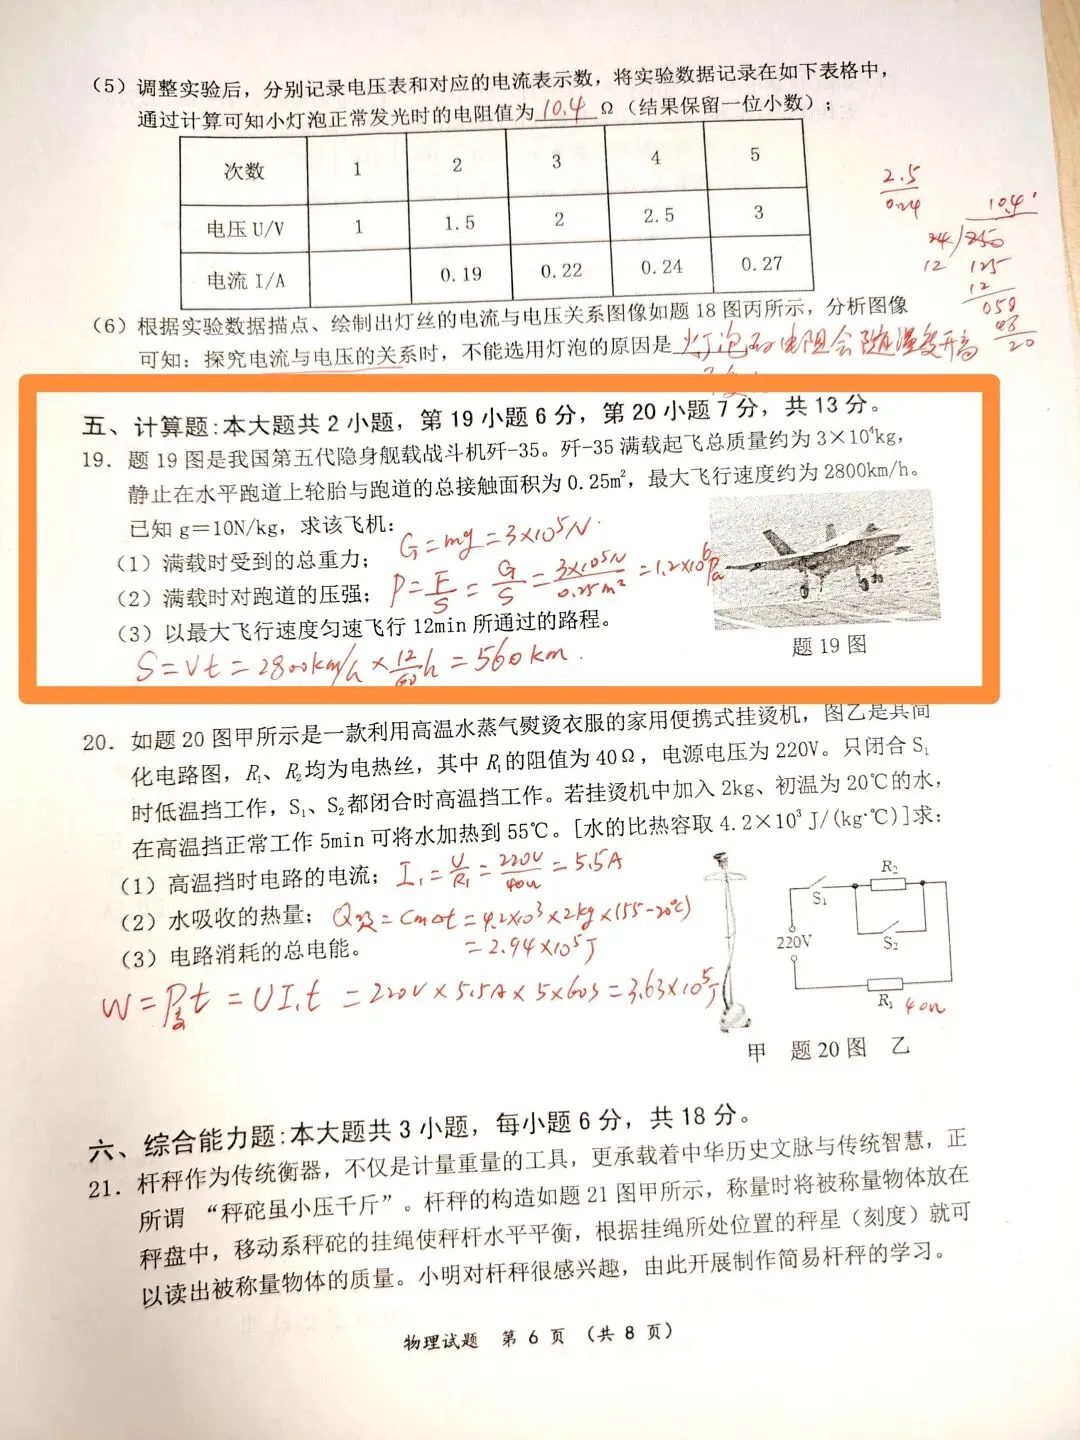 (5) 调整实验后，分别记录电压表和对应的电流表示数，将实验数据记录在如下表格中，
通过计算可知小灯泡正常发光时的电阻值为 10.4 Ω（结果保留一位小数）；
次数 1 2 3 4 5
电压 U/V 1 1.5 2 2.5 3
电流 I/A 0.19 0.22 0.24 0.27
2.5
0.24
10.4
24 250
12 125
12
050
48
20
(6) 根据实验数据描点、绘制出灯丝的电流与电压关系图像如题 18 图丙所示，分析图像
可知：探究电流与电压的关系时，不能选用灯泡的原因是 灯泡的电阻会随温度升高
五、计算题：本大题共 2 小题，第 19 小题 6 分，第 20 小题 7 分，共 13 分。
19．题 19 图是我国第五代隐身舰载战斗机歼-35。歼-35 满载起飞总质量约为 3×10⁴kg，
静止在水平跑道上轮胎与跑道的总接触面积为 0.25m²，最大飞行速度约为 2800km/h。
已知 g＝10N/kg，求该飞机：
G=mg=3×10⁵N.
(1) 满载时受到的总重力；
(2) 满载时对跑道的压强； P=F/S=G/S=3×10⁵N/0.25m²=1.2×10⁶Pa
(3) 以最大飞行速度匀速飞行 12min 所通过的路程。
题 19 图
S=Vt=2800km/h×12/60h=560km.
20．如题 20 图甲所示是一款利用高温水蒸气熨烫衣服的家用便携式挂烫机，图乙是其简
化电路图，R₁、R₂均为电热丝，其中 R₁的阻值为 40Ω，电源电压为 220V。只闭合 S₁
时低温挡工作，S₁、S₂都闭合时高温挡工作。若挂烫机中加入 2kg、初温为 20℃的水，
在高温挡正常工作 5min 可将水加热到 55℃。[水的比热容取 4.2×10³ J/(kg·℃)]求：
(1) 高温挡时电路的电流； I₁=U/R₁=220V/40Ω=5.5A
(2) 水吸收的热量； Q吸=cmΔt=4.2×10³×2kg×(55-20℃)
=2.94×10⁵J
(3) 电路消耗的总电能。
W=P高t=UI₁t=220V×5.5A×5×60s=3.63×10⁵J
R₂
S₁
S₂
220V
R₁ 40Ω
甲 题 20 图 乙
六、综合能力题：本大题共 3 小题，每小题 6 分，共 18 分。
21．杆秤作为传统衡器，不仅是计量重量的工具，更承载着中华历史文脉与传统智慧，正
所谓“秤砣虽小压千斤”。杆秤的构造如题 21 图甲所示，称量时将被称量物体放在
秤盘中，移动系秤砣的挂绳使秤杆水平平衡，根据挂绳所处位置的秤星（刻度）就可
以读出被称量物体的质量。小明对杆秤很感兴趣，由此开展制作简易杆秤的学习。
物理试题 第 6 页 （共 8 页）